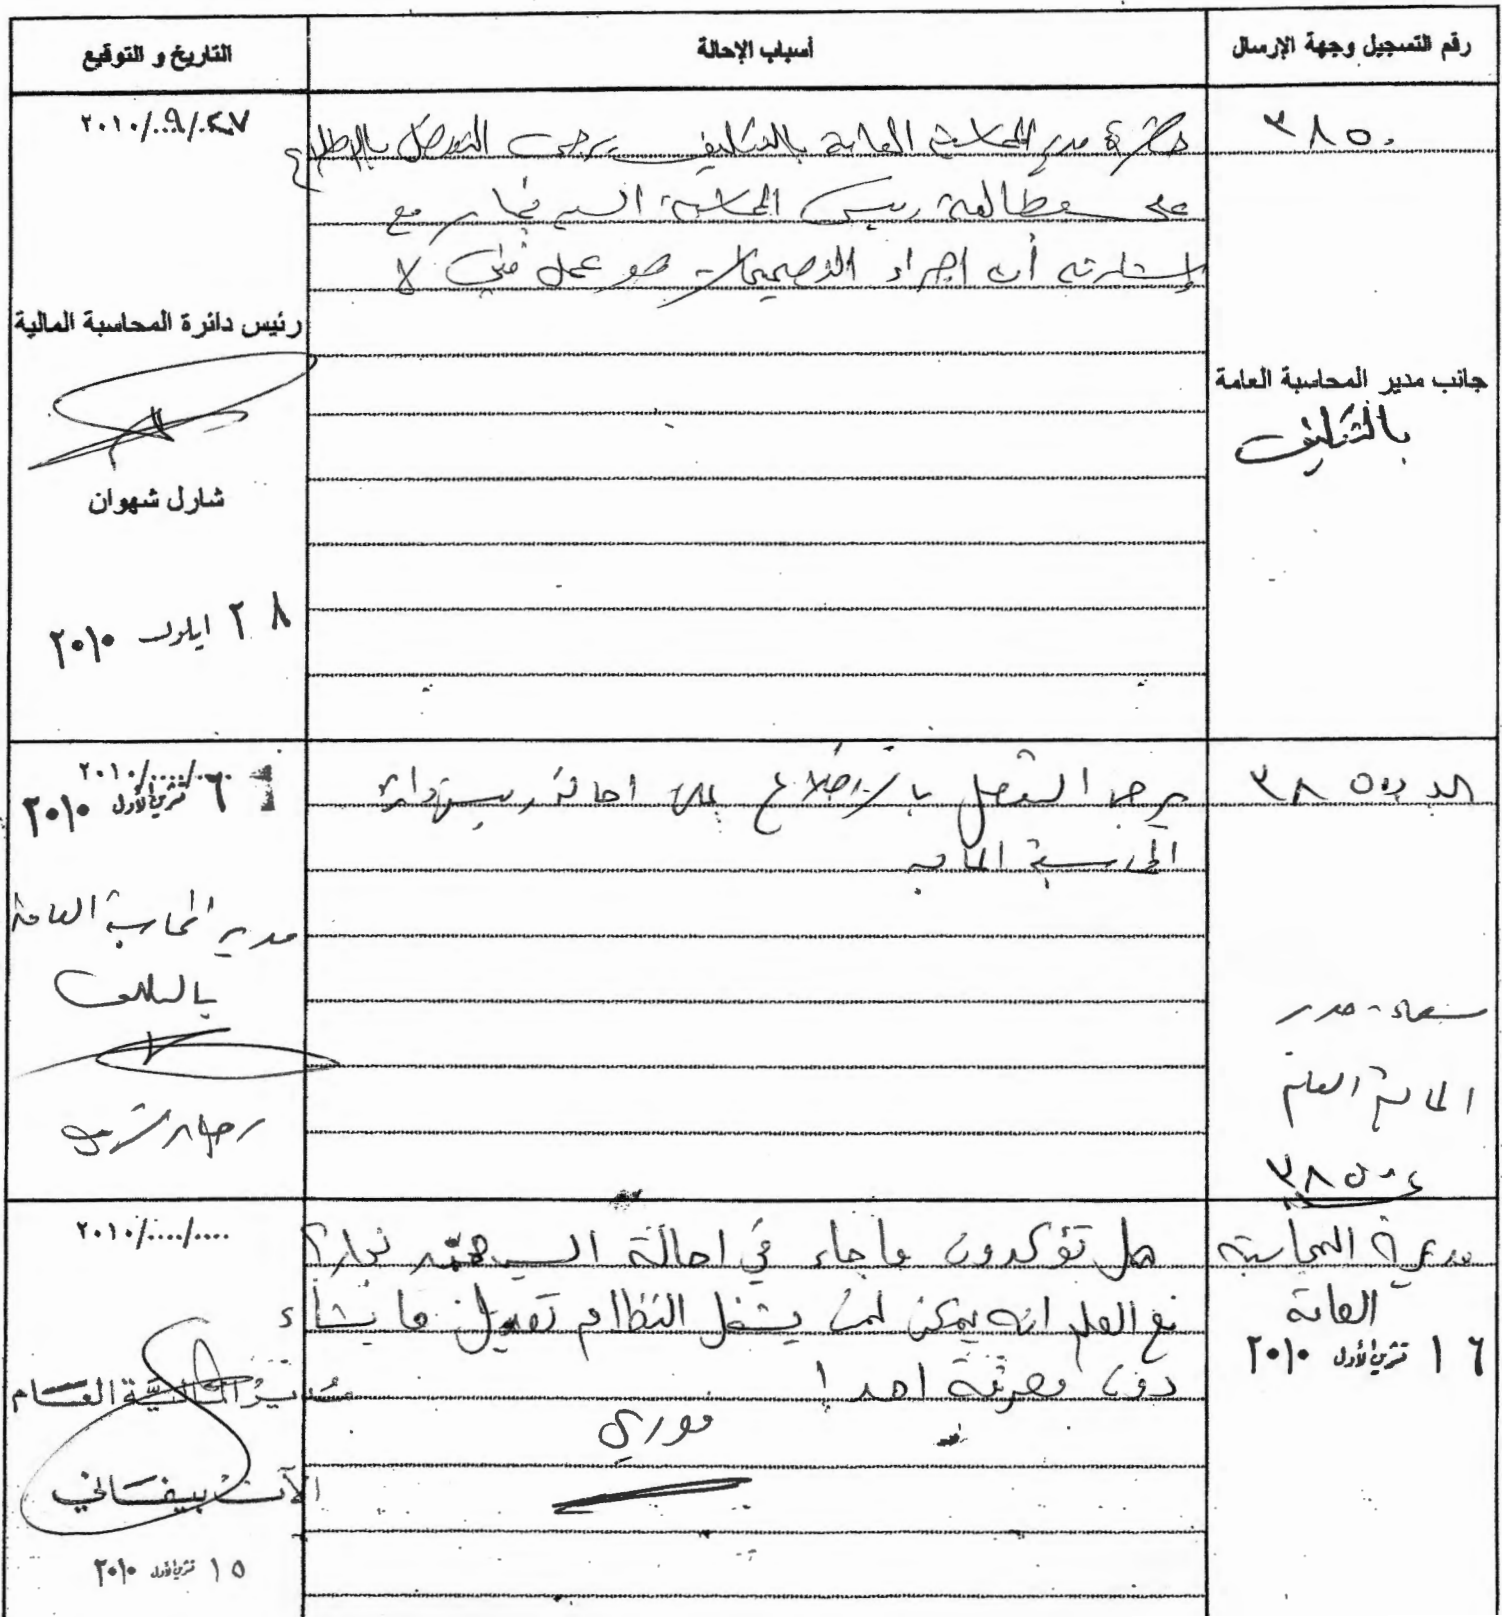 رقم التسجيل وجهة الإرسال
أسباب الإحالة
التاريخ و التوقيع
٣٨٥٠
جانب مدير المحاسبة العامة
بالتكليف
حضرة مدير المحاسبة العامة بالتكليف يرجى التفضل بالإطلاع
على مطالعة رئيس المحاسبة السيد نجار مع
الإشارة أن إجراء التصميمات هو عمل فني لا
٢٧/٩/٢٠١٠
رئيس دائرة المحاسبة المالية
شارل شهوان
٢٨ ايلول ٢٠١٠
العدد ٣٨٥٠
المالية العام
٣٨٥٠
يرجى التفضل بالاطلاع على احالة رئيس دائرة
المحاسبة المالية
..../..../٢٠١٠
٦ تشرين الأول ٢٠١٠
مدير المحاسبة العامة
بالتكليف
مديرية المحاسبة
العامة
١٦ تشرين الأول ٢٠١٠
هل تؤكدون ما جاء في احالة السيد نجار؟
مع العلم انه يمكن لمن يشغل النظام تعديل ما يشاء
دون معرفة احد!
فوري
..../..../٢٠١٠
مدير المالية العام
الآن بيفاني
١٥ تشرين الأول ٢٠١٠